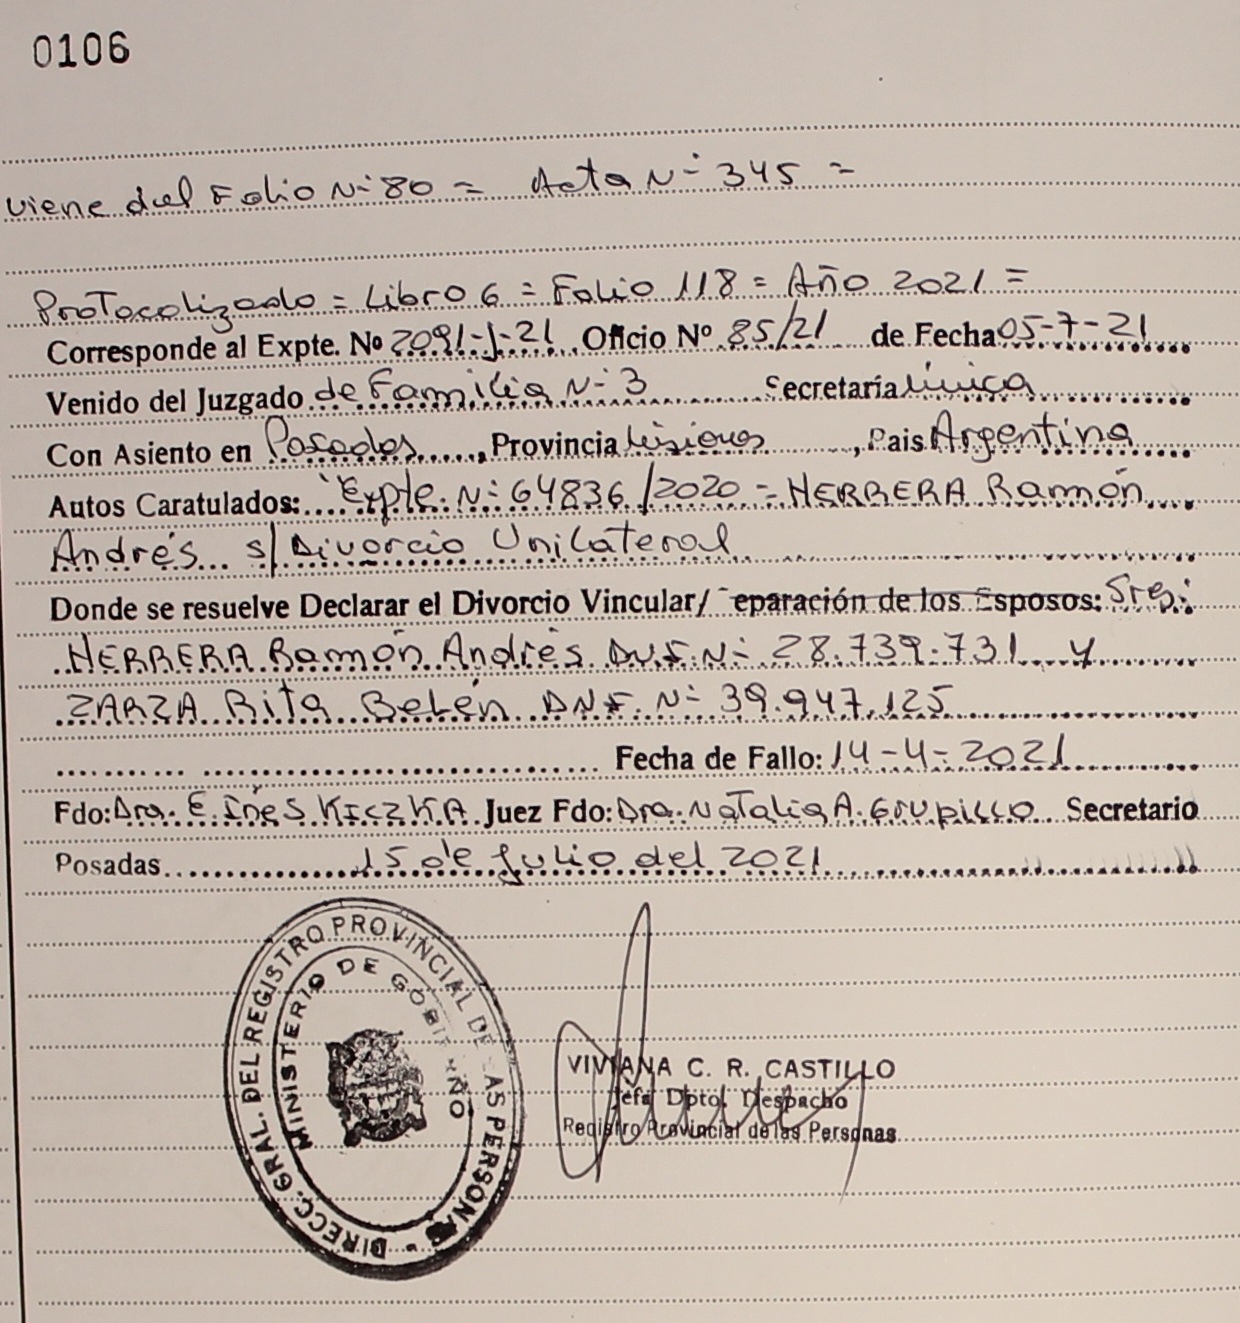 0106
viene del Folio N° 80 = Acta N° 345 =
Protocolizado = Libro 6 = Folio 118 = Año 2021 =
Corresponde al Expte. Nº 2091-J-21 Oficio Nº 85/21 de Fecha 05-7-21
Venido del Juzgado de Familia N° 3 Secretaría única
Con Asiento en Posadas, Provincia Misiones, Pais Argentina
Autos Caratulados: "Expte. N° 64836/2020 - HERRERA Ramón
Andrés s/ Divorcio Unilateral
Donde se resuelve Declarar el Divorcio Vincular/ eparación de los Esposos: Sres:
HERRERA Ramón Andrés D.N.I. N° 28.739.731 y
ZARZA Rita Belén DNI. N° 39.947.125
Fecha de Fallo: 14-4-2021
Fdo: Dra. E. Inés KICZKA Juez Fdo: Dra. Natalia A. Grupillo Secretario
Posadas 15 de Julio del 2021
DIRECC. GRAL. DEL REGISTRO PROVINCIAL DE LAS PERSONAS -
MINISTERIO DE GOBIERNO
VIVIANA C. R. CASTILLO
Jefa Dpto. Despacho
Registro Provincial de las Personas